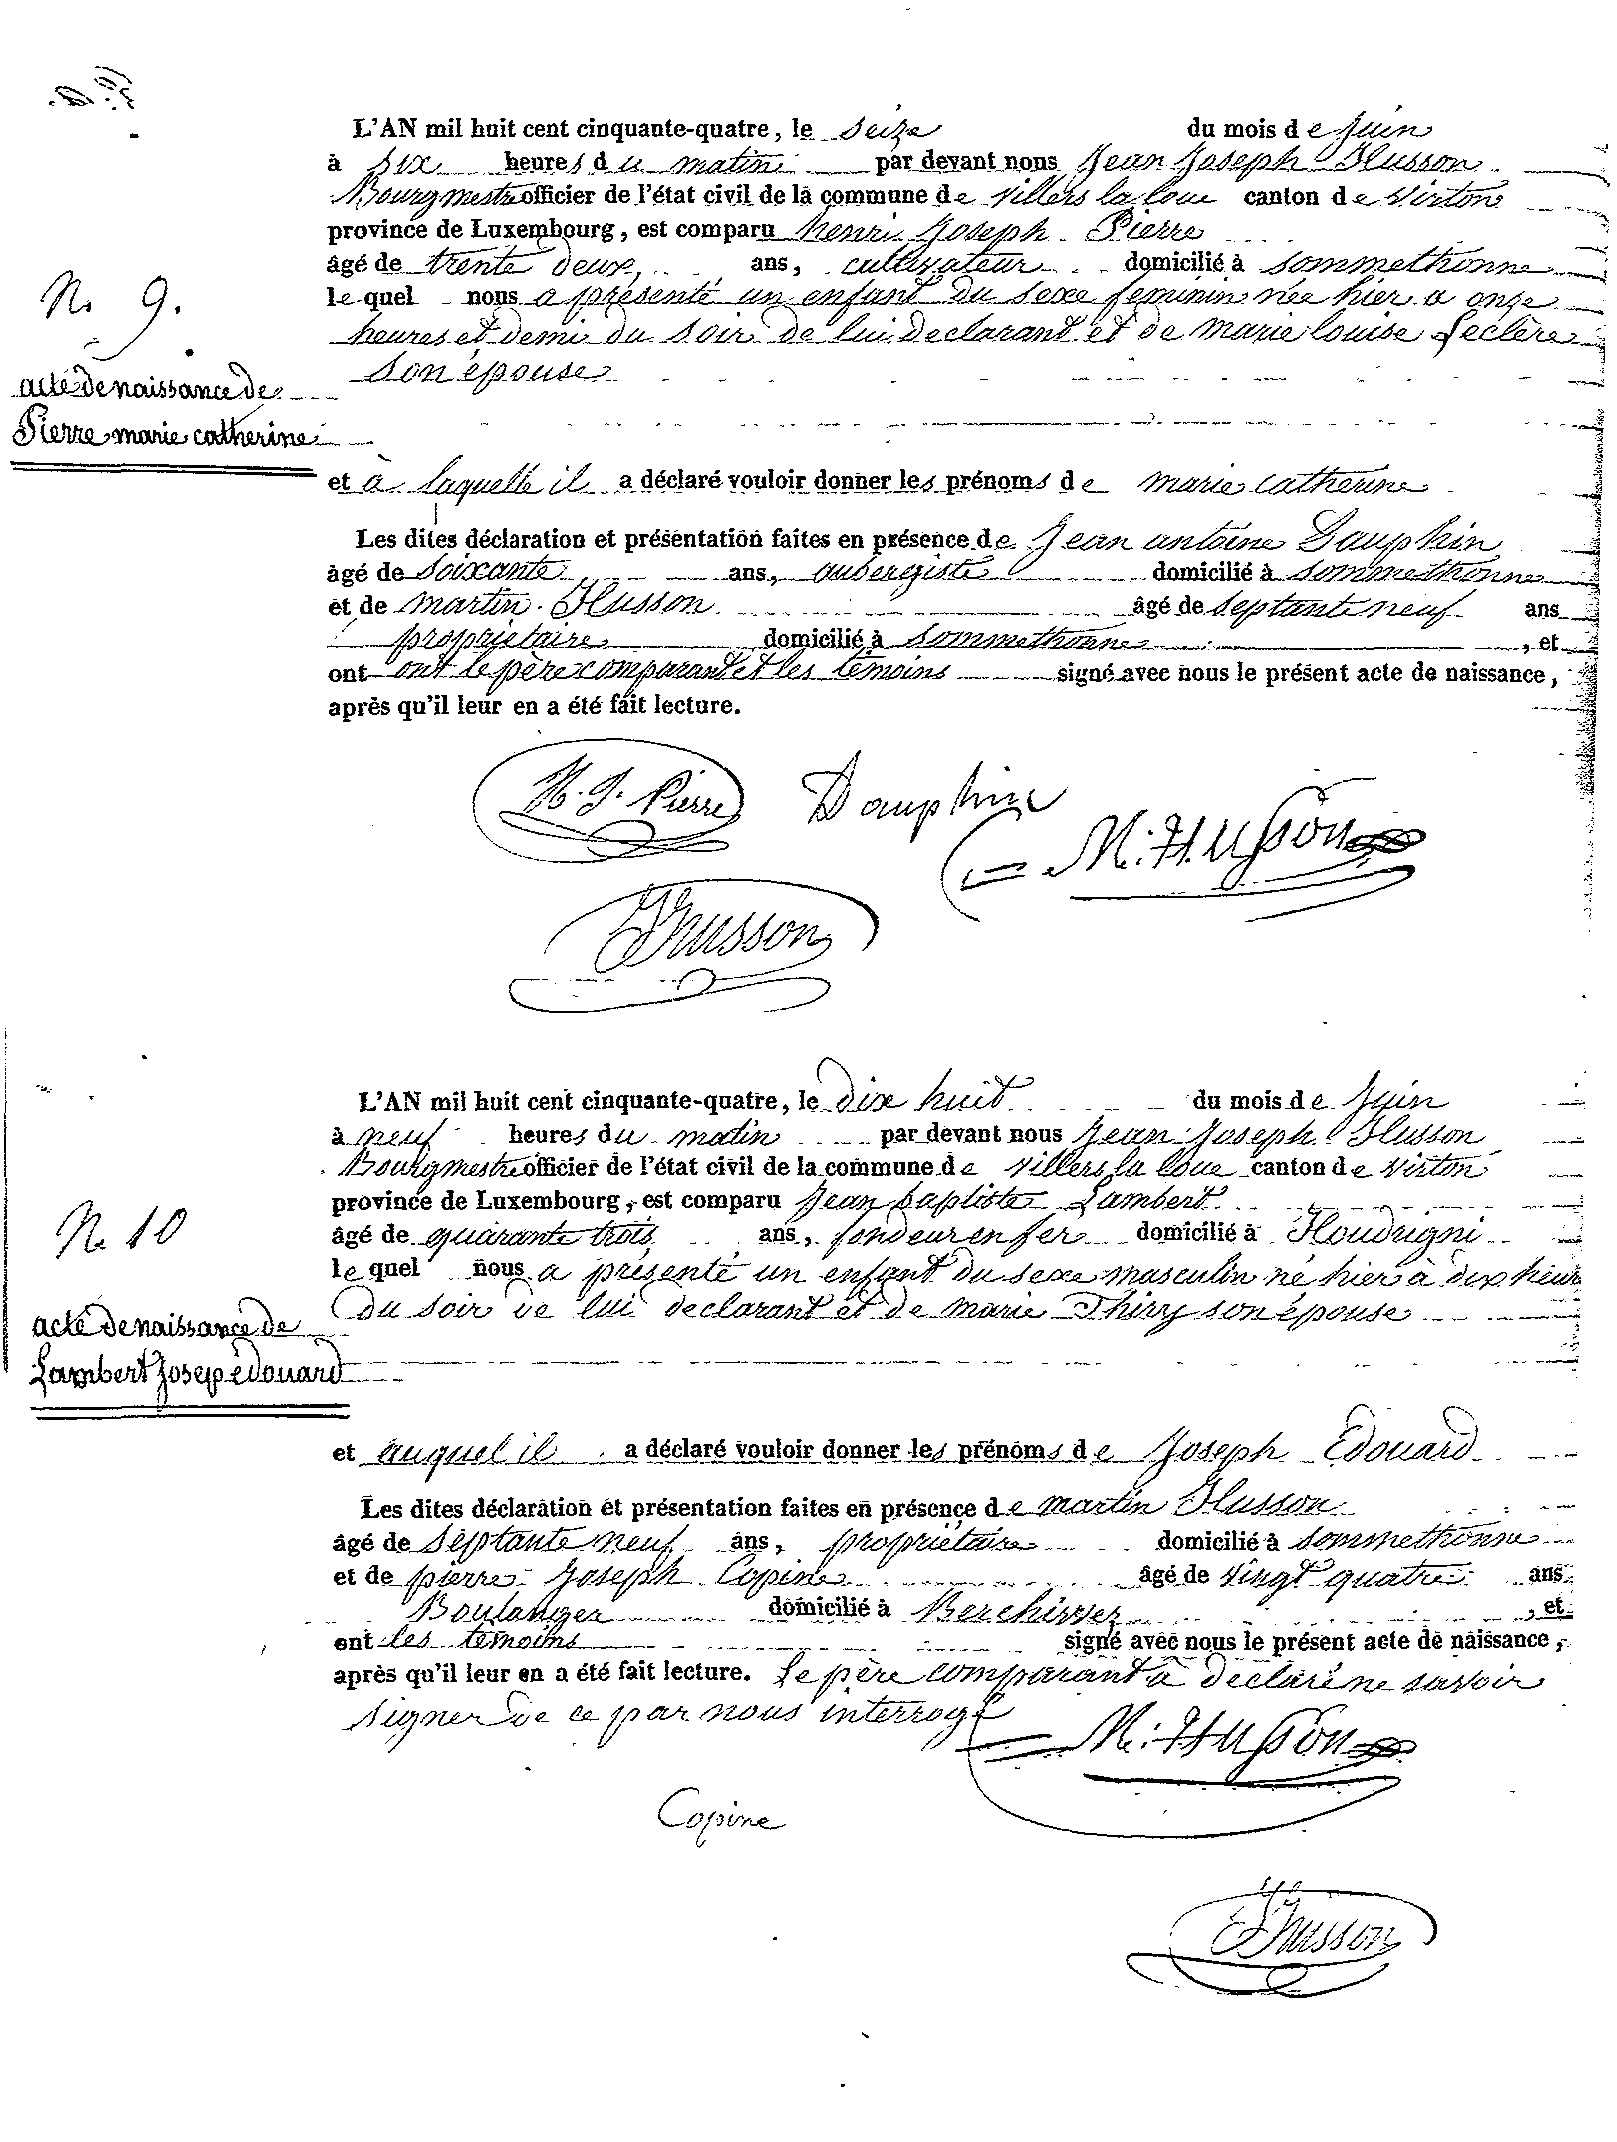 L'AN mil huit cent cinquante-quatre, le seize du mois de juin
à six heures du matin par devant nous Jean Joseph Husson
Bourgmestre officier de l'état civil de la commune de villers la loue canton de virton
province de Luxembourg, est comparu henri Joseph Pierre
âgé de trente deux ans, cultivateur domicilié à sommethonne
N. 9.
le quel nous a présenté un enfant du sexe feminin née hier a onze
heures et demi du soir de lui declarant et de marie louise Leclère
son épouse
acte de naissance de
Pierre marie catherine
et à laquelle il a déclaré vouloir donner les prénoms de marie catherine
Les dites déclaration et présentation faites en présence de Jean antoine Dauphin
âgé de soixante ans, aubergiste domicilié à sommethonne
et de martin Husson âgé de septante neuf ans
proprietaire domicilié à sommethonne, et
ont ont le père comparant et les témoins signé avec nous le présent acte de naissance,
après qu'il leur en a été fait lecture.
H. J. Pierre Dauphin
M. Husson
JJhusson
L'AN mil huit cent cinquante-quatre, le dix huit du mois de juin
à neuf heures du matin par devant nous Jean Joseph Husson
Bourgmestre officier de l'état civil de la commune de villers la loue canton de virton
province de Luxembourg, est comparu Jean baptiste Lambert
N. 10
âgé de quarante trois ans, fondeur en fer domicilié à Houdrigni
le quel nous a présenté un enfant du sexe masculin né hier à dix heur
du soir de lui declarant et de marie Thiry son épouse
acte de naissance de
Lambert Josep édouard
et auquel il a déclaré vouloir donner les prénoms de Joseph Edouard
Les dites déclaration et présentation faites en présence de martin Husson
âgé de septante neuf ans, propriétaire domicilié à sommethonne
et de pierre Joseph Copine âgé de vingt quatre ans
Boulanger domicilié à Berchiwez, et
ont les temoins signé avec nous le présent acte de naissance,
après qu'il leur en a été fait lecture. Le père comparant à declaré ne savoir
signer de ce par nous interrogé
M. Husson
Copine
JJhusson